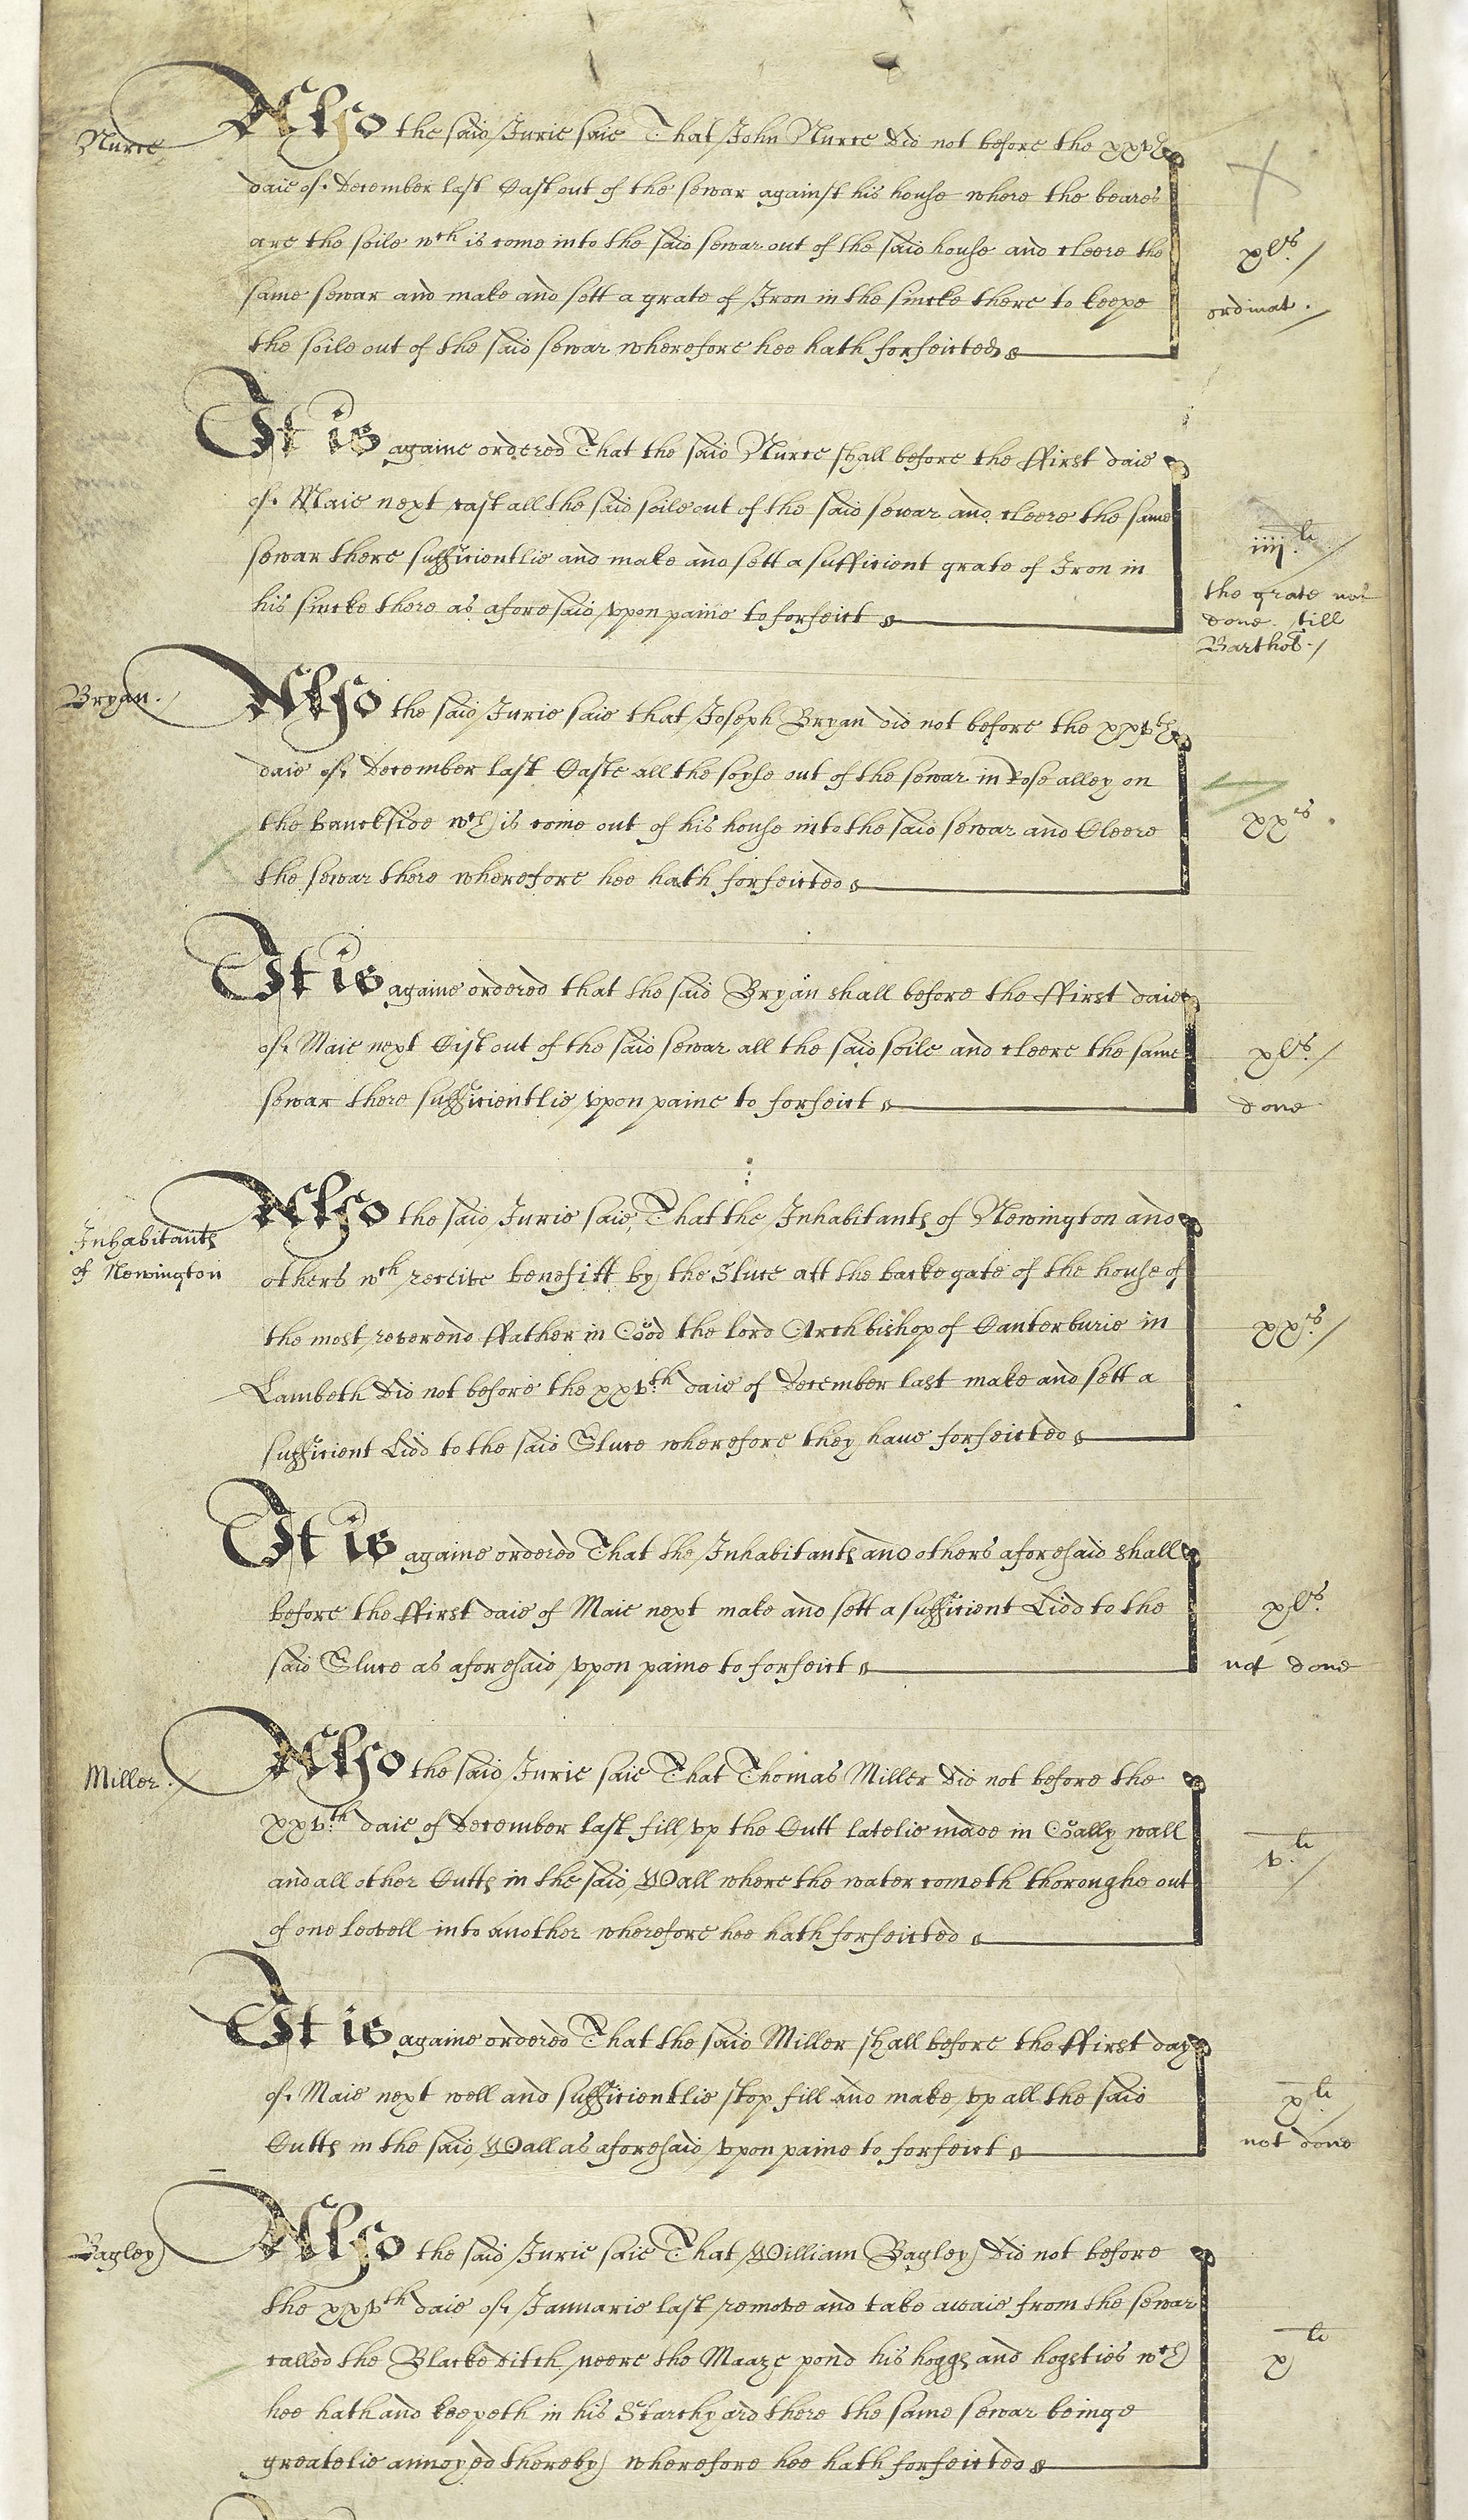 Nurce
Also the said Jurie saie That John Nurce did not before the xxvth
daie of December last Cast out of the sewar against his house where the beares
are the soile wch is come into the said sewar out of the said house and cleere the
same sewar and make and sett a grate of Iron in the sincke there to keepe
the soile out of the said sewar wherefore hee hath forfeicted
xls
ordinat.
It is againe ordered That the said Nurce shall before the ffirst daie
of Maie next cast all the said soile out of the said sewar and cleere the same
sewar there sufficientlie and make and sett a sufficient grate of Iron in
his sincke there as aforesaid vpon paine to forfeict
iiij li
the grate not
done till
Barthol.
Bryan.
Also the said Jurie saie that Joseph Bryan did not before the xxvth
daie of December last Caste all the soyle out of the sewar in Rose alley on
the banckside wch is come out of his house into the said sewar and Cleere
the sewar there wherefore hee hath forfeicted
xxs
It is againe ordered that the said Bryan shall before the ffirst daie
of Maie next Cast out of the said sewar all the said soile and cleere the same
sewar there sufficientlie vpon paine to forfeict
xls.
done
Inhabitants
of Newington
Also the said Jurie saie, That the Inhabitants of Newington and
others wch receive benefitt by the Sluce att the backe gate of the house of
the most reverend ffather in God the lord Archbishop of Canterburie in
Lambeth did not before the xxvth daie of December last make and sett a
sufficient Lidd to the said Sluce wherefore they haue forfeicted
xxs.
It is againe ordered That the Inhabitants and others aforesaid shall
before the ffirst daie of Maie next make and sett a sufficient Lidd to the
said Sluce as aforesaid vpon paine to forfeict
xls.
not done
Miller.
Also the said Jurie saie That Thomas Miller did not before the
xxvth daie of December last fill vp the Cutt latelie made in Gally wall
and all other Cutts in the said Wall where the water cometh thoroughe out
of one levell into another wherefore hee hath forfeicted
v li
It is againe ordered That the said Miller shall before the ffirst day
of Maie next well and sufficientlie stop fill and make vp all the said
Cutts in the said Wall as aforesaid vpon paine to forfeict
x li
not done
Bagley
Also the said Jurie saie That William Bagley did not before
the xxvth daie of Januarie last remove and take awaie from the sewar
called the Blacke ditch neere the Maaze pond his hoggs and hogsties wch
hee hath and keepeth in his Starchyard there the same sewar beinge
greatelie annoyed thereby wherefore hee hath forfeicted
x li